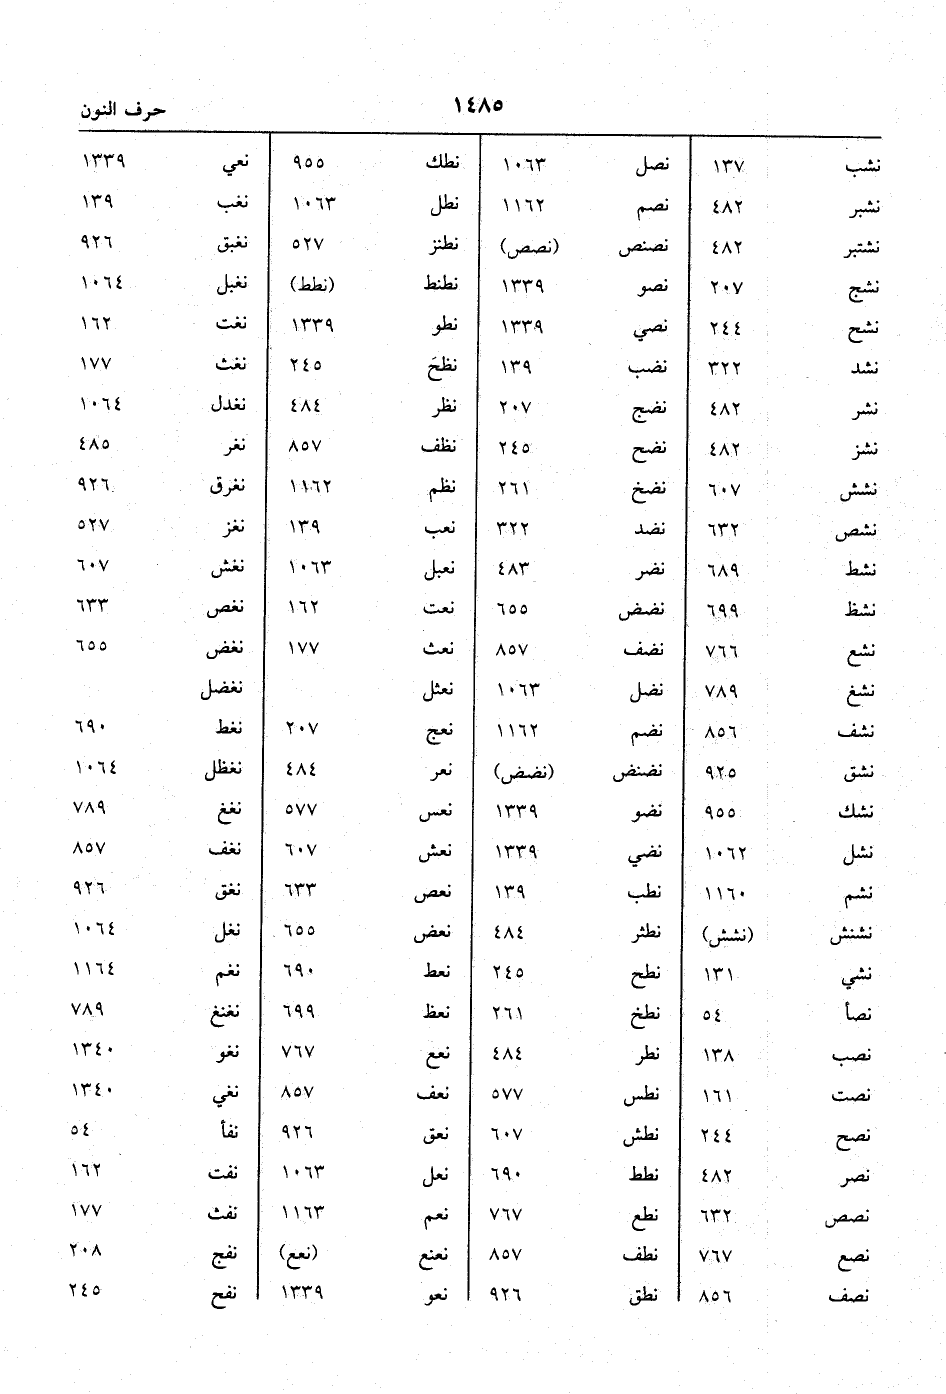 حرف النون ١٤٨٥
نشب ١٣٧
نشبر ٤٨٢
نشتبر ٤٨٢
نشج ٢٠٧
نشح ٢٤٤
نشد ٣٢٢
نشر ٤٨٢
نشز ٤٨٢
نشش ٦٠٧
نشص ٦٣٢
نشط ٦٨٩
نشظ ٦٩٩
نشع ٧٦٦
نشغ ٧٨٩
نشف ٨٥٦
نشق ٩٢٥
نشك ٩٥٥
نشل ١٠٦٢
نشم ١١٦٠
نشنش (نشش)
نشي ١٣١
نصأ ٥٤
نصب ١٣٨
نصت ١٦١
نصح ٢٤٤
نصر ٤٨٢
نصص ٦٣٢
نصع ٧٦٧
نصف ٨٥٦
نصل ١٠٦٣
نصم ١١٦٢
نصنص (نصص)
نصو ١٣٣٩
نصي ١٣٣٩
نضب ١٣٩
نضج ٢٠٧
نضح ٢٤٥
نضخ ٢٦١
نضد ٣٢٢
نضر ٤٨٣
نضض ٦٥٥
نضف ٨٥٧
نضل ١٠٦٣
نضم ١١٦٢
نضنض (نضض)
نضو ١٣٣٩
نضي ١٣٣٩
نطب ١٣٩
نطثر ٤٨٤
نطح ٢٤٥
نطخ ٢٦١
نطر ٤٨٤
نطس ٥٧٧
نطش ٦٠٧
نطط ٦٩٠
نطع ٧٦٧
نطف ٨٥٧
نطق ٩٢٦
نطك ٩٥٥
نطل ١٠٦٣
نطنز ٥٢٧
نطنط (نطط)
نطو ١٣٣٩
نظحَ ٢٤٥
نظر ٤٨٤
نظف ٨٥٧
نظم ١١٦٢
نعب ١٣٩
نعبل ١٠٦٣
نعت ١٦٢
نعث ١٧٧
نعثل
نعج ٢٠٧
نعر ٤٨٤
نعس ٥٧٧
نعش ٦٠٧
نعص ٦٣٣
نعض ٦٥٥
نعط ٦٩٠
نعظ ٦٩٩
نعع ٧٦٧
نعف ٨٥٧
نعق ٩٢٦
نعل ١٠٦٣
نعم ١١٦٣
نعنع (نعع)
نعو ١٣٣٩
نعي ١٣٣٩
نغب ١٣٩
نغبق ٩٢٦
نغبل ١٠٦٤
نغت ١٦٢
نغث ١٧٧
نغدل ١٠٦٤
نغر ٤٨٥
نغرق ٩٢٦
نغز ٥٢٧
نغش ٦٠٧
نغص ٦٣٣
نغض ٦٥٥
نغضل
نغط ٦٩٠
نغظل ١٠٦٤
نغغ ٧٨٩
نغف ٨٥٧
نغق ٩٢٦
نغل ١٠٦٤
نغم ١١٦٤
نغنغ ٧٨٩
نغو ١٣٤٠
نغي ١٣٤٠
نفأ ٥٤
نفت ١٦٢
نفث ١٧٧
نفج ٢٠٨
نفح ٢٤٥